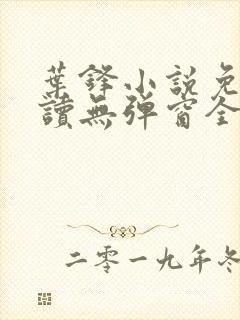 葉鋒小説免
讀無彈窗全
二零一九年冬